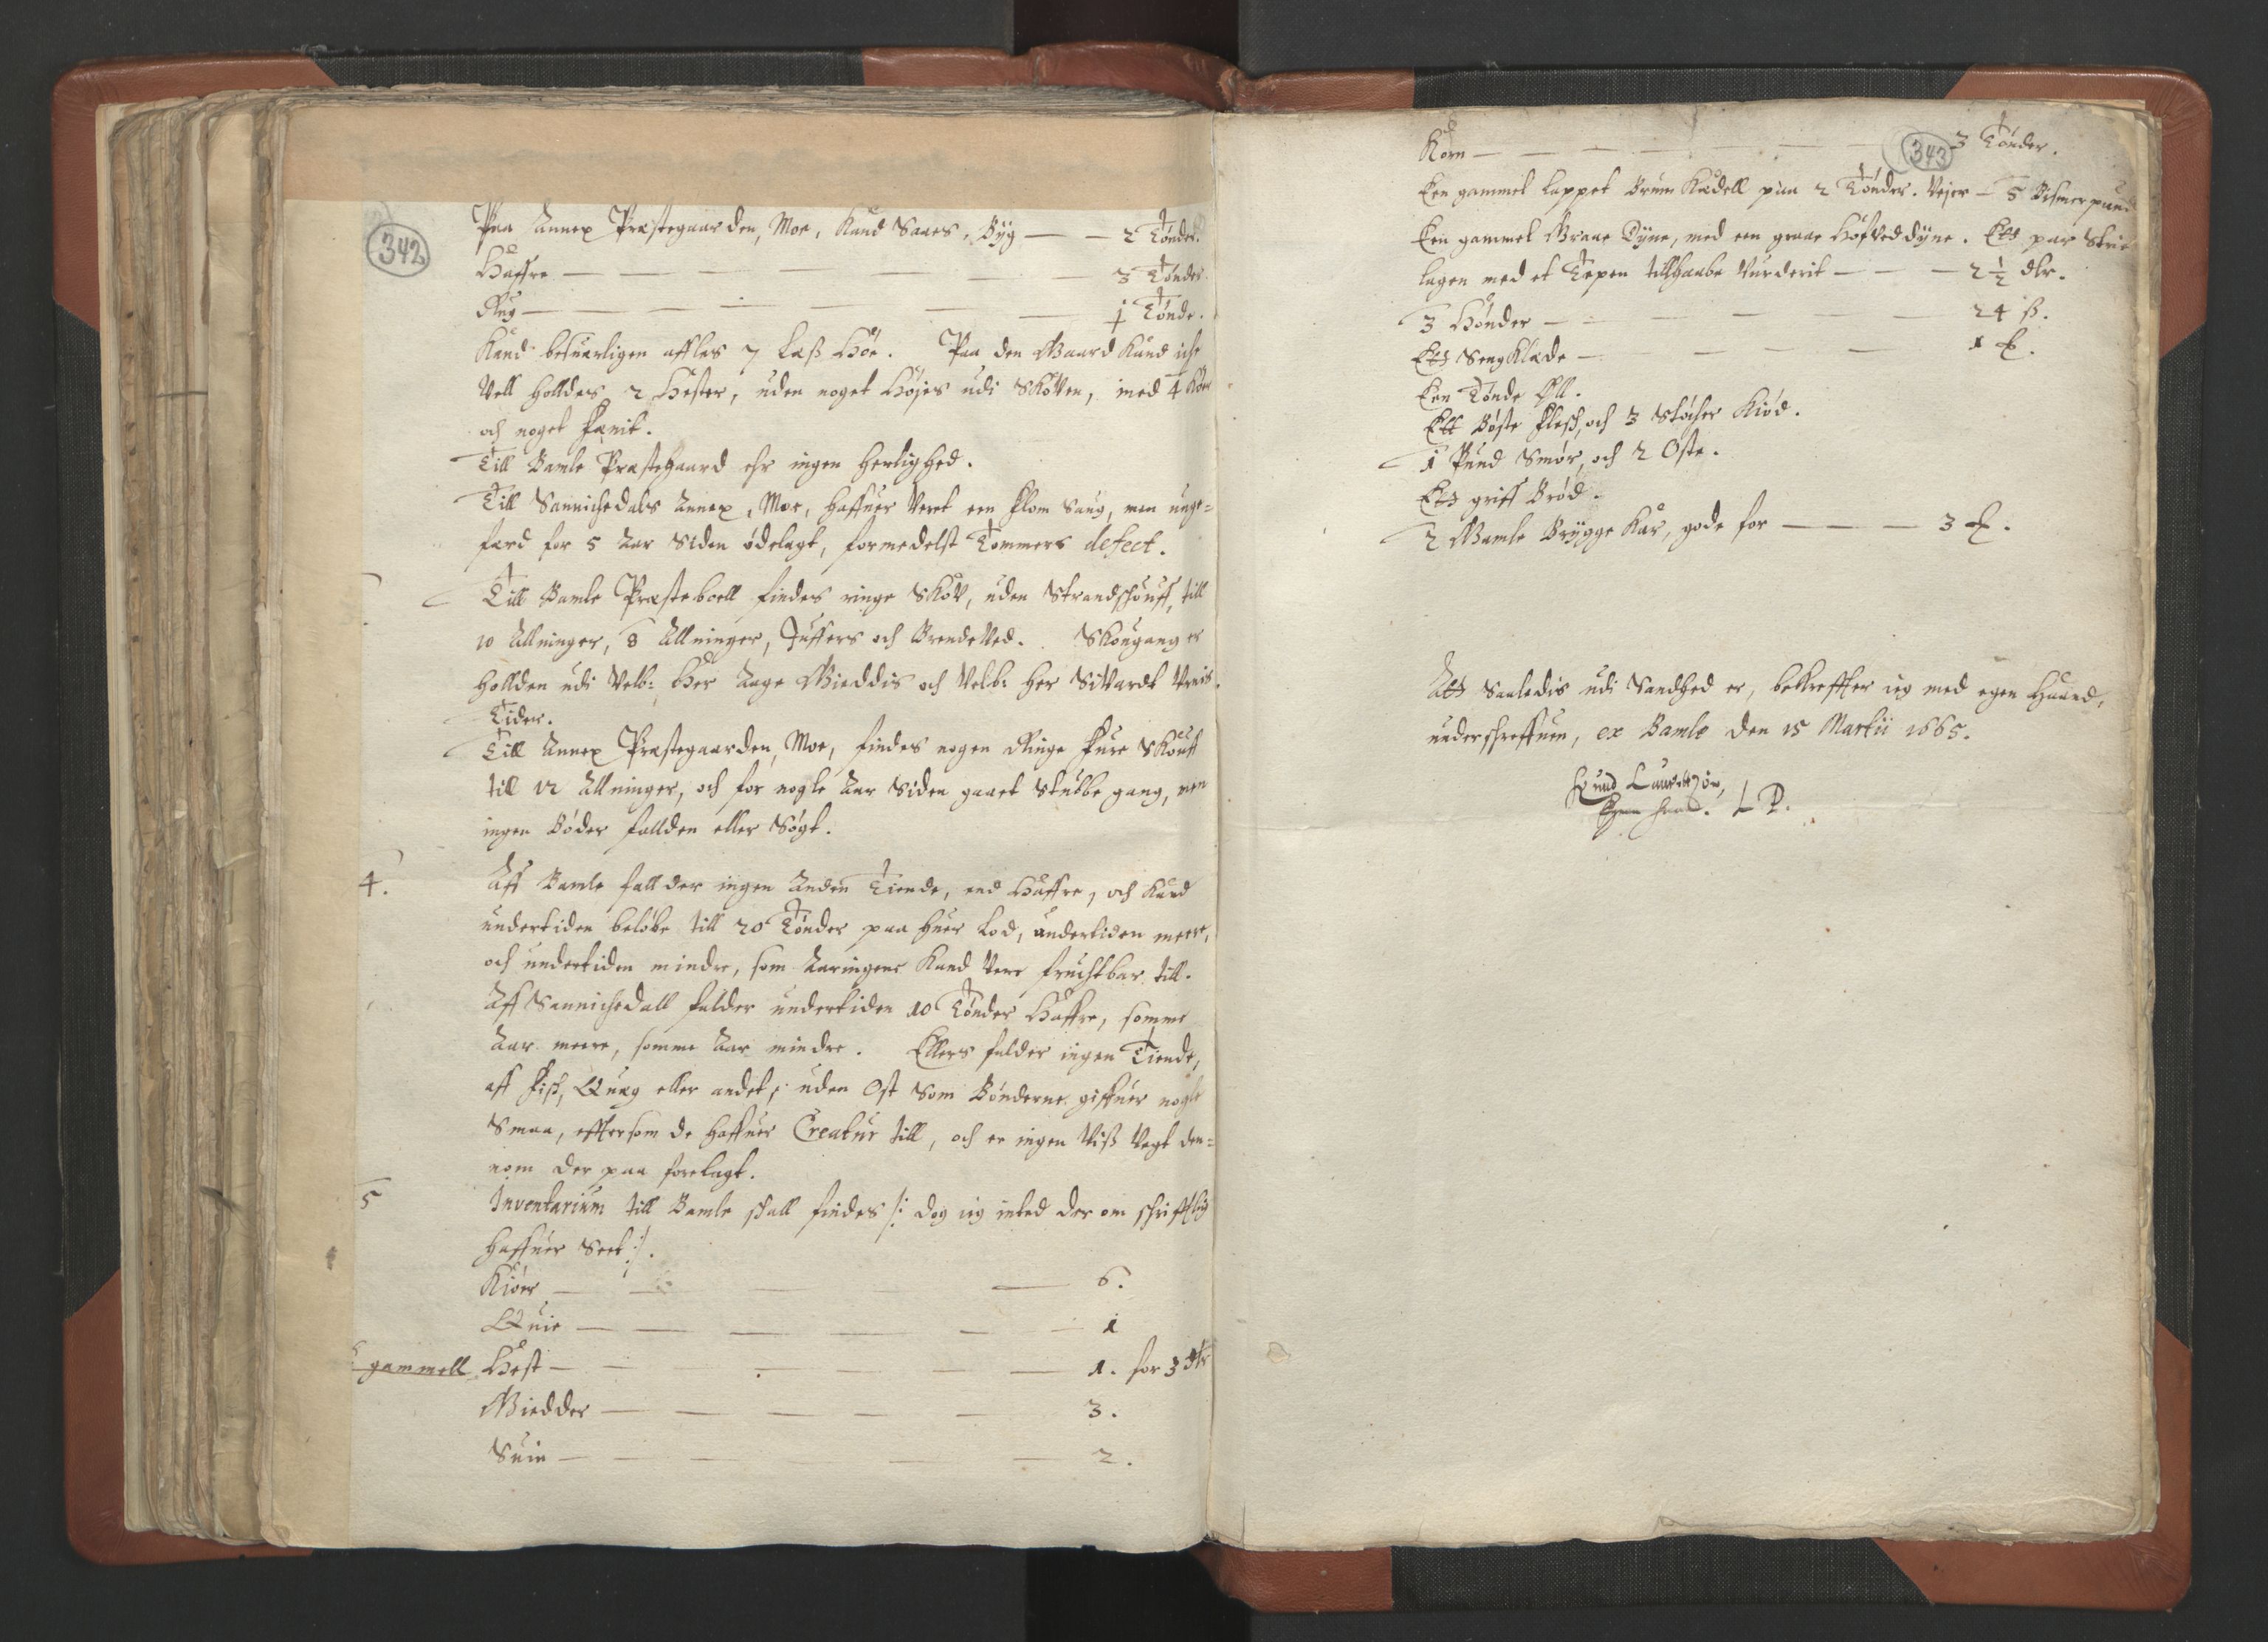 342
Paa Annex Præstegaarden, Moe, Kand Saaes, Byg — — 2 Tønder.
Haffre — — — — — — 3 Tønder.
Rug — — — — — — 1 Tønde.
Kand besuerligen affles 7 Læß Høe. Paa den Gaard Kand iche
Vell holldes 2 Hester, uden noget Høyes udi Skoven, med 4 Kiør
och noget fænit.
Till Bamle Præstegaard ehr ingen herlighed.
Till Sannichedals Annex, Moe, haffuer Veret een flom Saug, men unge=
færd for 5 Aar siden ødelagt, formedelst Tømmers defect.
Till Bamle Præsteboell findes ringe Skov, uden Strandschouff, till
10 Allninger, 8 Allninger, Juffers och Brendeved. Skougang er
hollden udi Velb: Her Aage Gieddis och Velb: her Sivardt Vrnis
Tider.
Till Annex Præstegaarden, Moe, findes nogen Ringe fure Skouff
till 12 Allninger, och for nogle Aar siden gaaet Stubbe gang, men
ingen Bøder fallden eller Søgt.
4. Aff Bamle fallder ingen Anden Tiende, end Haffre, och Kand
undertiden beløbe till 20 Tønder paa huer Lod, undertiden meere,
och undertiden mindre, som Aaringene Kand Vere fruchtbar till.
Aff Sannichedall falder undertiden 10 Tønder Haffre, somme
Aar meere, somme Aar mindre. Ellers falder ingen Tiende,
aff fisk, Quæg eller andet, uden Ost Som Bønderne giffuer nogle
Smaa, effersom de haffuer Creatur till, och er ingen Viß Vegt den=
nom der paa forelagt.
5 Inventarium till Bamle skall findes /: dog ieg inted der om schrifftlig
haffuer Seet :/.
Kiøer — — — — — 6.
Quie — — — — — — 1
gammell Hest — — — — — 1. for 3 dlr
Giedder — — — — — 3.
Suin — — — — — 2.
343
Korn — — — — — — 3 Tønder.
Een gammel lappet Brun Kædell paa 2 Tønder. Vejer — 5 Bismerpund
Een gammel Graae Dyne, med een graae Høfveddyne. Ett par Strie
lagen med et Tepen tillhaabe Vurderit — — — 2 1/2 dlr.
3 Hønder — — — — — 24 ß.
Ett SengKlæde — — — — 1
Een Tønde Øll.
Ett Bøste flesk, och 3 Støcher Kiød.
1 Pund Smør, och 2 Oste.
Ett griff Brød.
2 Gamle Brygge Kar, gode for — — — 3
Att Saaledis udi Sandhed er, bekreffter ieg med egen Haand,
underschreffuen, ex Bamle den 15 Martii 1665.
Knud Lauritzøn,
Egen haand. L P.